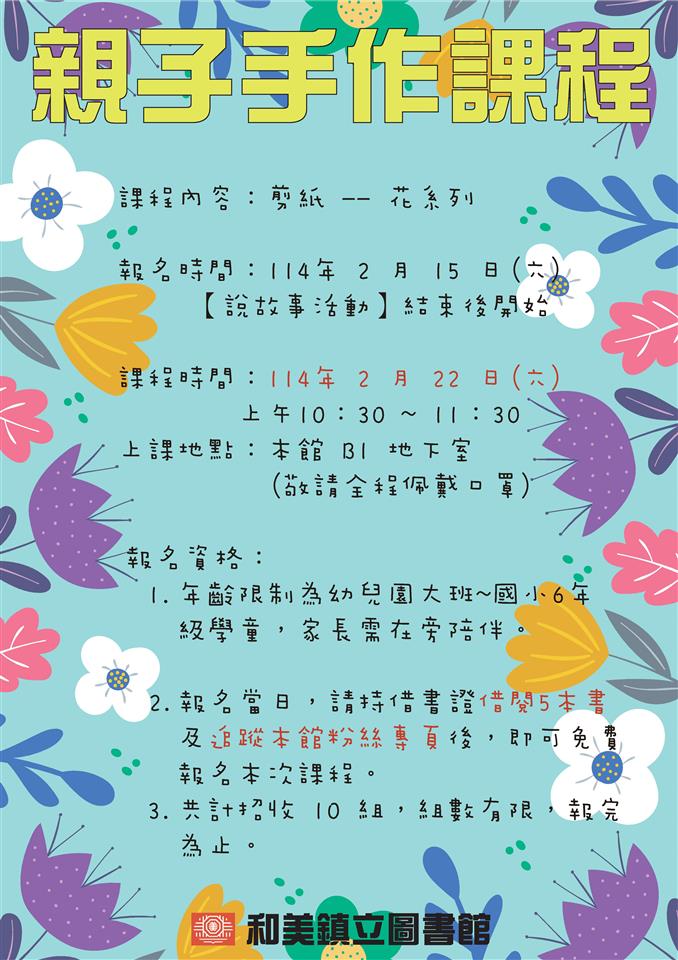 親子手作課程
課程內容：剪紙 -- 花系列
報名時間：114年 2 月 15 日(六)
【說故事活動】結束後開始
課程時間：114年 2 月 22 日(六)
上午10：30 ~ 11：30
上課地點：本館 B1 地下室
(敬請全程佩戴口罩)
報名資格：
1. 年齡限制為幼兒園大班~國小6年
級學童，家長需在旁陪伴。
2. 報名當日，請持借書證借閱5本書
及追蹤本館粉絲專頁後，即可免費
報名本次課程。
3. 共計招收 10 組，組數有限，報完
為止。
和美鎮立圖書館